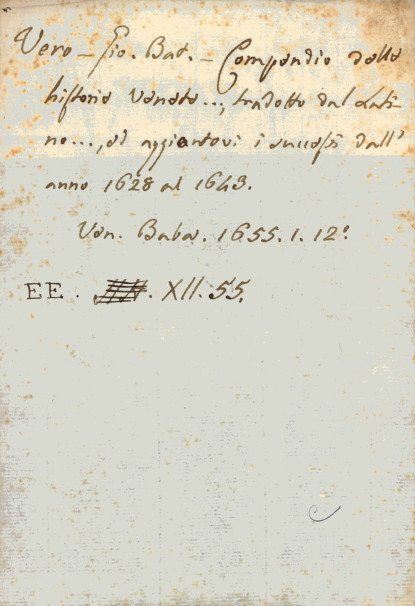 Vero - Gio. Bat. - Compendio delle
historie Venete..., tradotto dal Lati-
no..., ed aggiontovi i successi dall'
anno 1628 al 1643.
Ven. Baba. 1655. 1. 12º.
EE. . XII. 55.